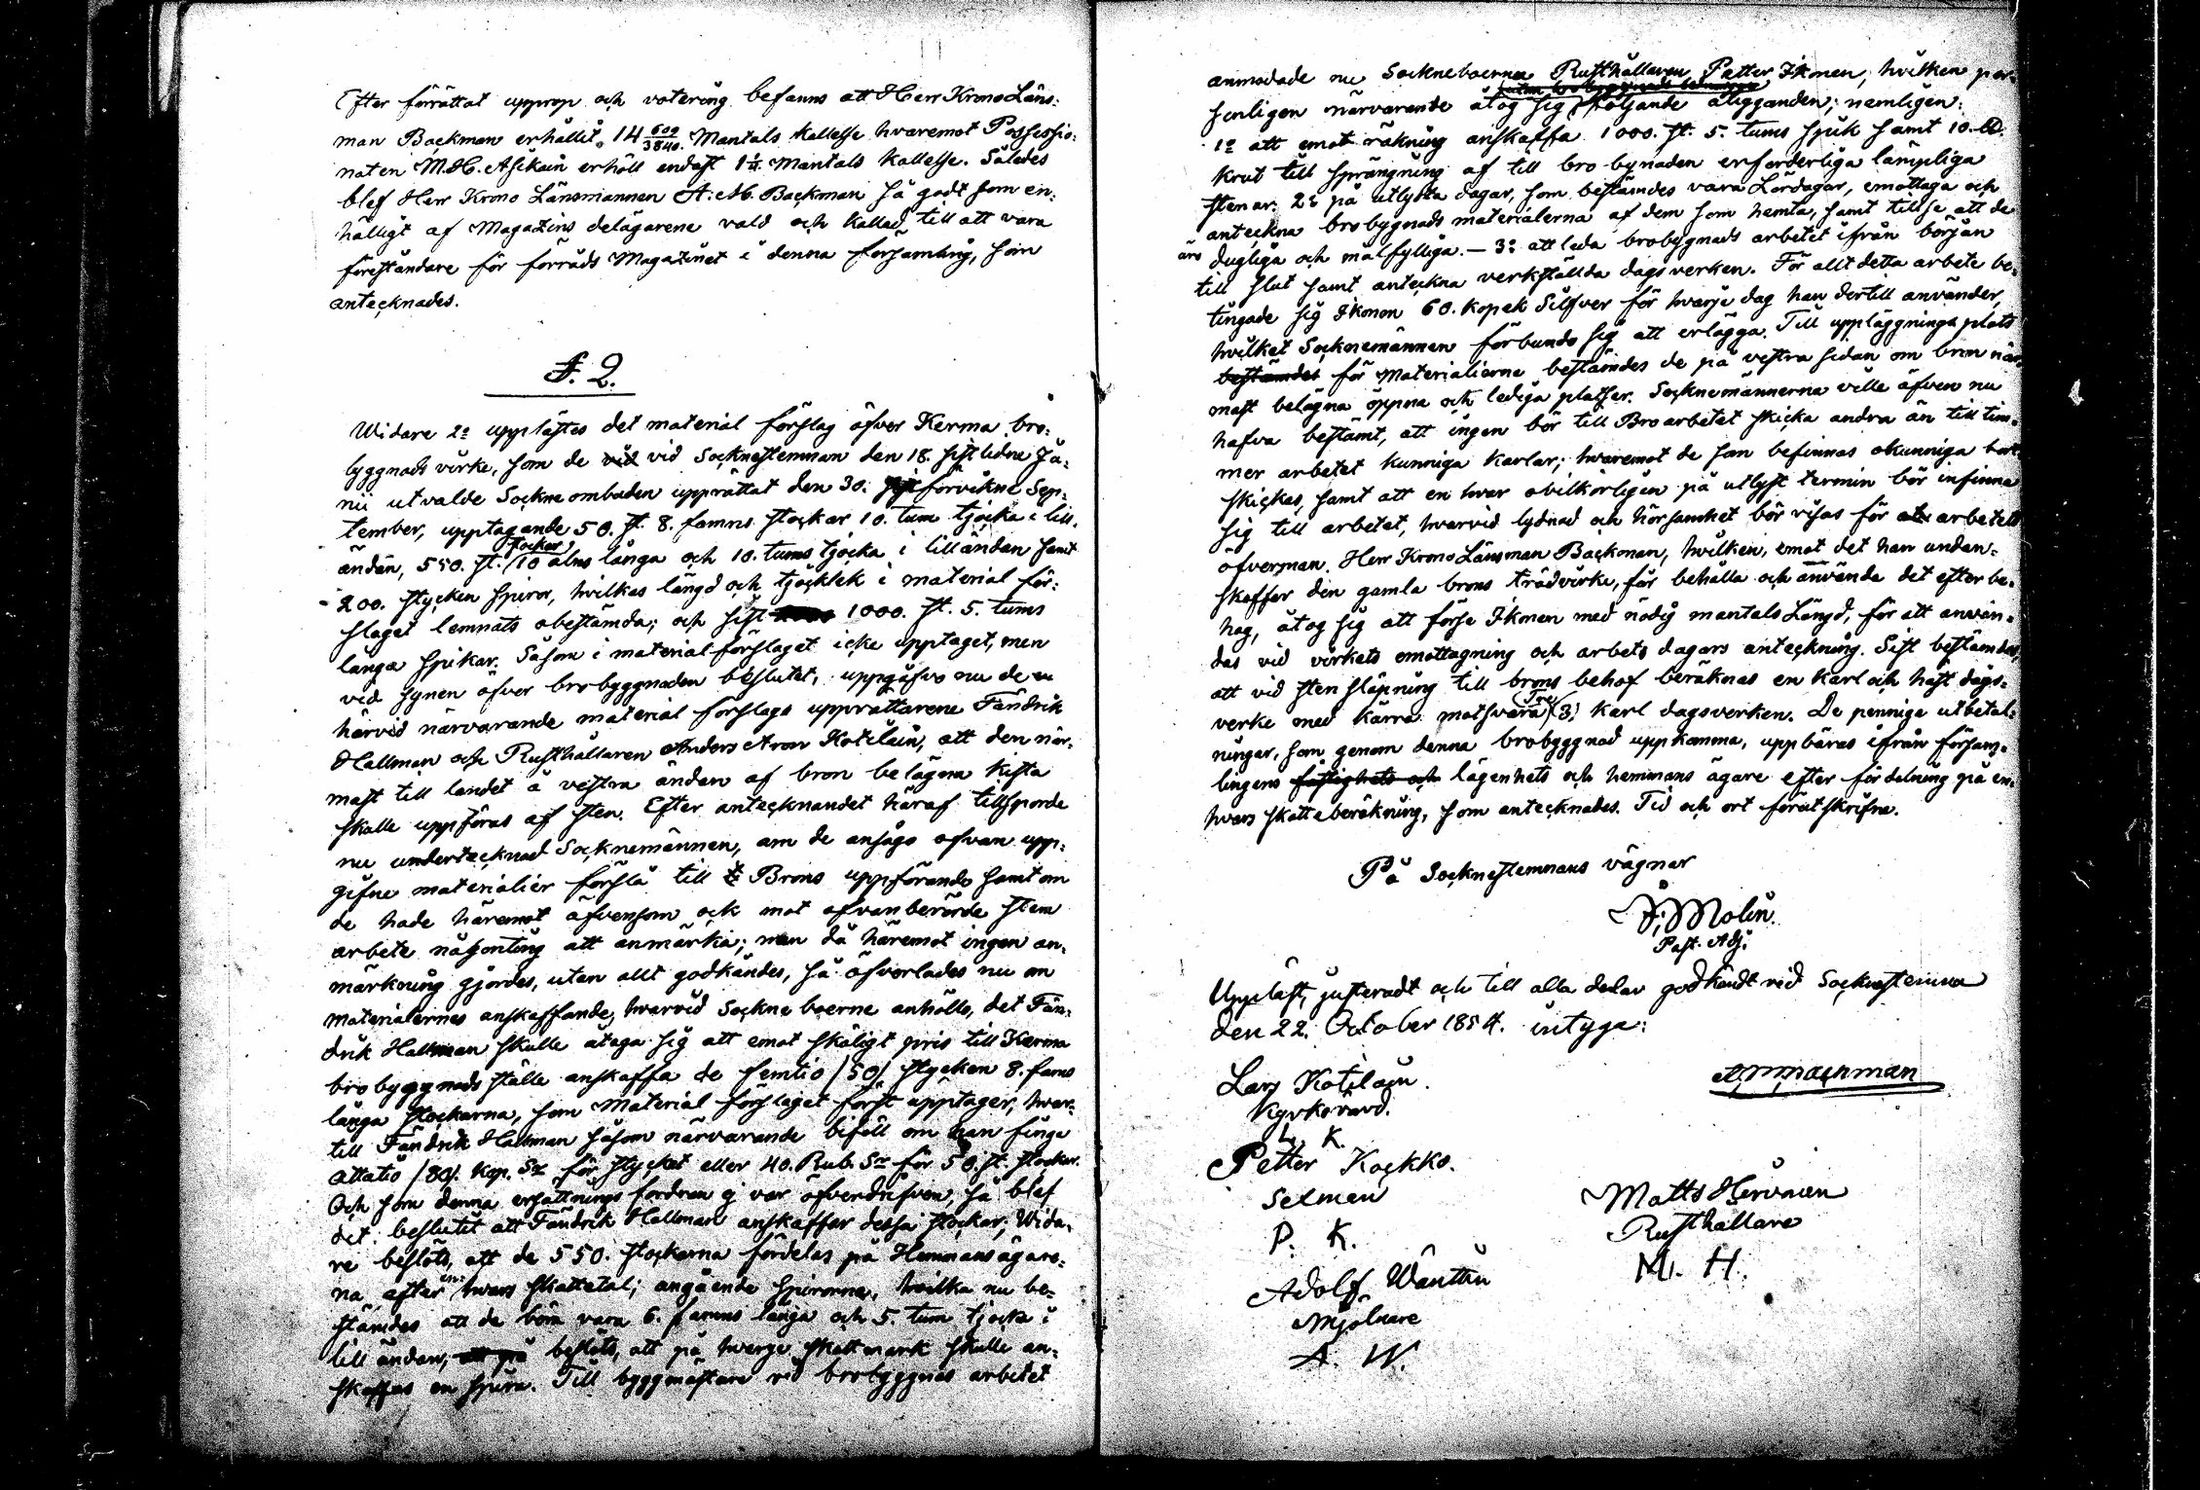 Efter förrättat upprop och votering befanns att Herr Krono Läns-
man Backman erhållit 14 602/3840 Mantals kallelse hvaremot Possessio-
naten M.H. Asikain erhöll endast 1 1/2 Mantals kallelse. Således
blef Herr Krono Länsmannen A. M. Backman så godt som en-
hälligt af Magazins delägarene vald och kallad till att vara
föreståndare för förråds Magazinet i denna församling, som
antecknades.
§. 2.
Widare 2o upplästes det material förslag öfver Kerma bro-
byggnads virke, som de vid vid Sockne stemman den 18. sistlidne Ju-
nii utvalde Sockne ombuden upprättat den 30. förvikne Sep-
tember, upptagande 50. st. 8. famns stockar 10. tum tjocka i lill-
ändan, 550. st. stockar 10 alns långa och 10. tums tjocka i lilländan samt
200. stycken spiror, hvilkas längd och tjocklek i material för-
slaget lemnats obestämda; och sist 1000. st. 5. tums
långa spikar. Såsom i material förslaget icke upptaget, men
vid synen öfver brobyggnaden beslutet, uppgåfvo nu de
härvid närvarande material förslags upprättarene Fändrik
Hallman och Rusthållaren Anders Aron Kotilain, att den när-
mast till landet å vestra ändan af bron belägna kista
skulle uppföras af sten. Efter antecknandet häraf tillsporde
nu undertecknad Socknemännen, om de ansågo ofvan upp-
gifne materialier förslå till Brons uppförande samt om
de hade häremot äfvensom ock mot ofvanberörde sten
arbete någonting att anmärka; men då häremot ingen an-
märkning gjordes, utan allt godkändes, så öfverlades nu om
materialernes anskaffande, hvarvid Sockne boerne anhöllo, det Fän-
drik Hallman skulle åtaga sig att emot skäligt pris till Kerma
brobyggnads ställe anskaffa de femtio /50/ stycken 8. famns
långa stockarna, som Material förslaget först upptager, hvar-
till Fändrik Hallman såsom närvarande biföll om han finge
åttatio /80/. kop. Sr för stycket eller 40. Rub. Sr för 50. st. stockar.
Och som denna ersättnings fordran ej var öfverdrifven, så blef
det beslutet att Fändrik Hallman anskaffar dessa stockar; Wida-
re beslöts, att de 550. stockarna fördelas på Hemmans ägare-
na efter en hvars skattetal; angående spirorna, hvilka nu be-
stämdes att de böra vara 6. famns långa och 5. tum tjocka i
lilländan, att på beslöts, att på hvarje skattmark skulle an-
skaffas en spira. Till byggmästare vid brobyggnads arbetet
anmodade nu Sockneboerna Rusthållaren Petter Ikonen, hvilken per-
sonligen närvarande åtog sig följande åligganden; nemligen:
1o att emot räkning anskaffa 1000. st. 5. tums spik samt 10. ℔.
krut till sprängning af till bro bynaden erforderliga lämpliga
stenar. 2o på utlysta dagar, som bestämdes vara Lördagar, emottaga och
anteckna brobyggnads materialerna af dem som hemta, samt tillse att de
äro dugliga och målfylliga. — 3o att leda brobyggnads arbetet ifrån början
till slut samt anteckna verkställda dagsverken. För allt detta arbete be-
tingade sig Ikonen 60. kopek Silfver för hvarje dag han dertill använder,
hvilket Socknemännen förbundo sig att erlägga. Till uppläggnings plats
bestämdes för Materialierna bestämdes de på vestra sidan om bron när-
mast belägna öppna och lediga platser. Socknemännerna ville äfven nu
hafva bestämt, att ingen bör till Bro arbetet skicka andra än till tim-
mer arbetet kunniga karlar; hvaremot de som befinnas okunniga bort
skickas, samt att en hvar ovilkorligen på utlyst termin bör infinna
sig till arbetet, hvarvid lydnad och hörsamhet bör visas för arbetets
öfverman. Herr Krono Länsman Backman, hvilken, emot det han undan-
skaffar den gamla brons trädvirke, får behålla och använda det efter be-
hag, åtog sig att förse Ikonen med nödig mantals Längd, för att använ-
das vid virkets emottagning och arbets dagars anteckning. Sist bestämdes,
att vid sten släpning till brons behof beräknas en karl och häst dags-
verke med kärra motsvara Tre /3/ karl dagsverken. De penninge utbetal-
ningar, som genom denna brobyggnad uppkomma, uppbäras ifrån försam-
lingens fastighets och lägenhets och hemmans ägare efter fördelning på en-
hvars skatteberäkning, som antecknades. Tid och ort förutskrifne.
På Sockne stemmans vägnar
F. Molin
Past. Adj.
Uppläst, justeradt och till alla delar godkändt vid Sockne stemma
den 22. October 1854. intyga:
Lars Kotilain.
Kyrkovärd.
L. K.
A M Backman
Petter Kockko.
Sexman
P. K.
Matts Hirvonen
Rusthållare
M. H.
Adolf Wäntin
Mjölnare
A. W.